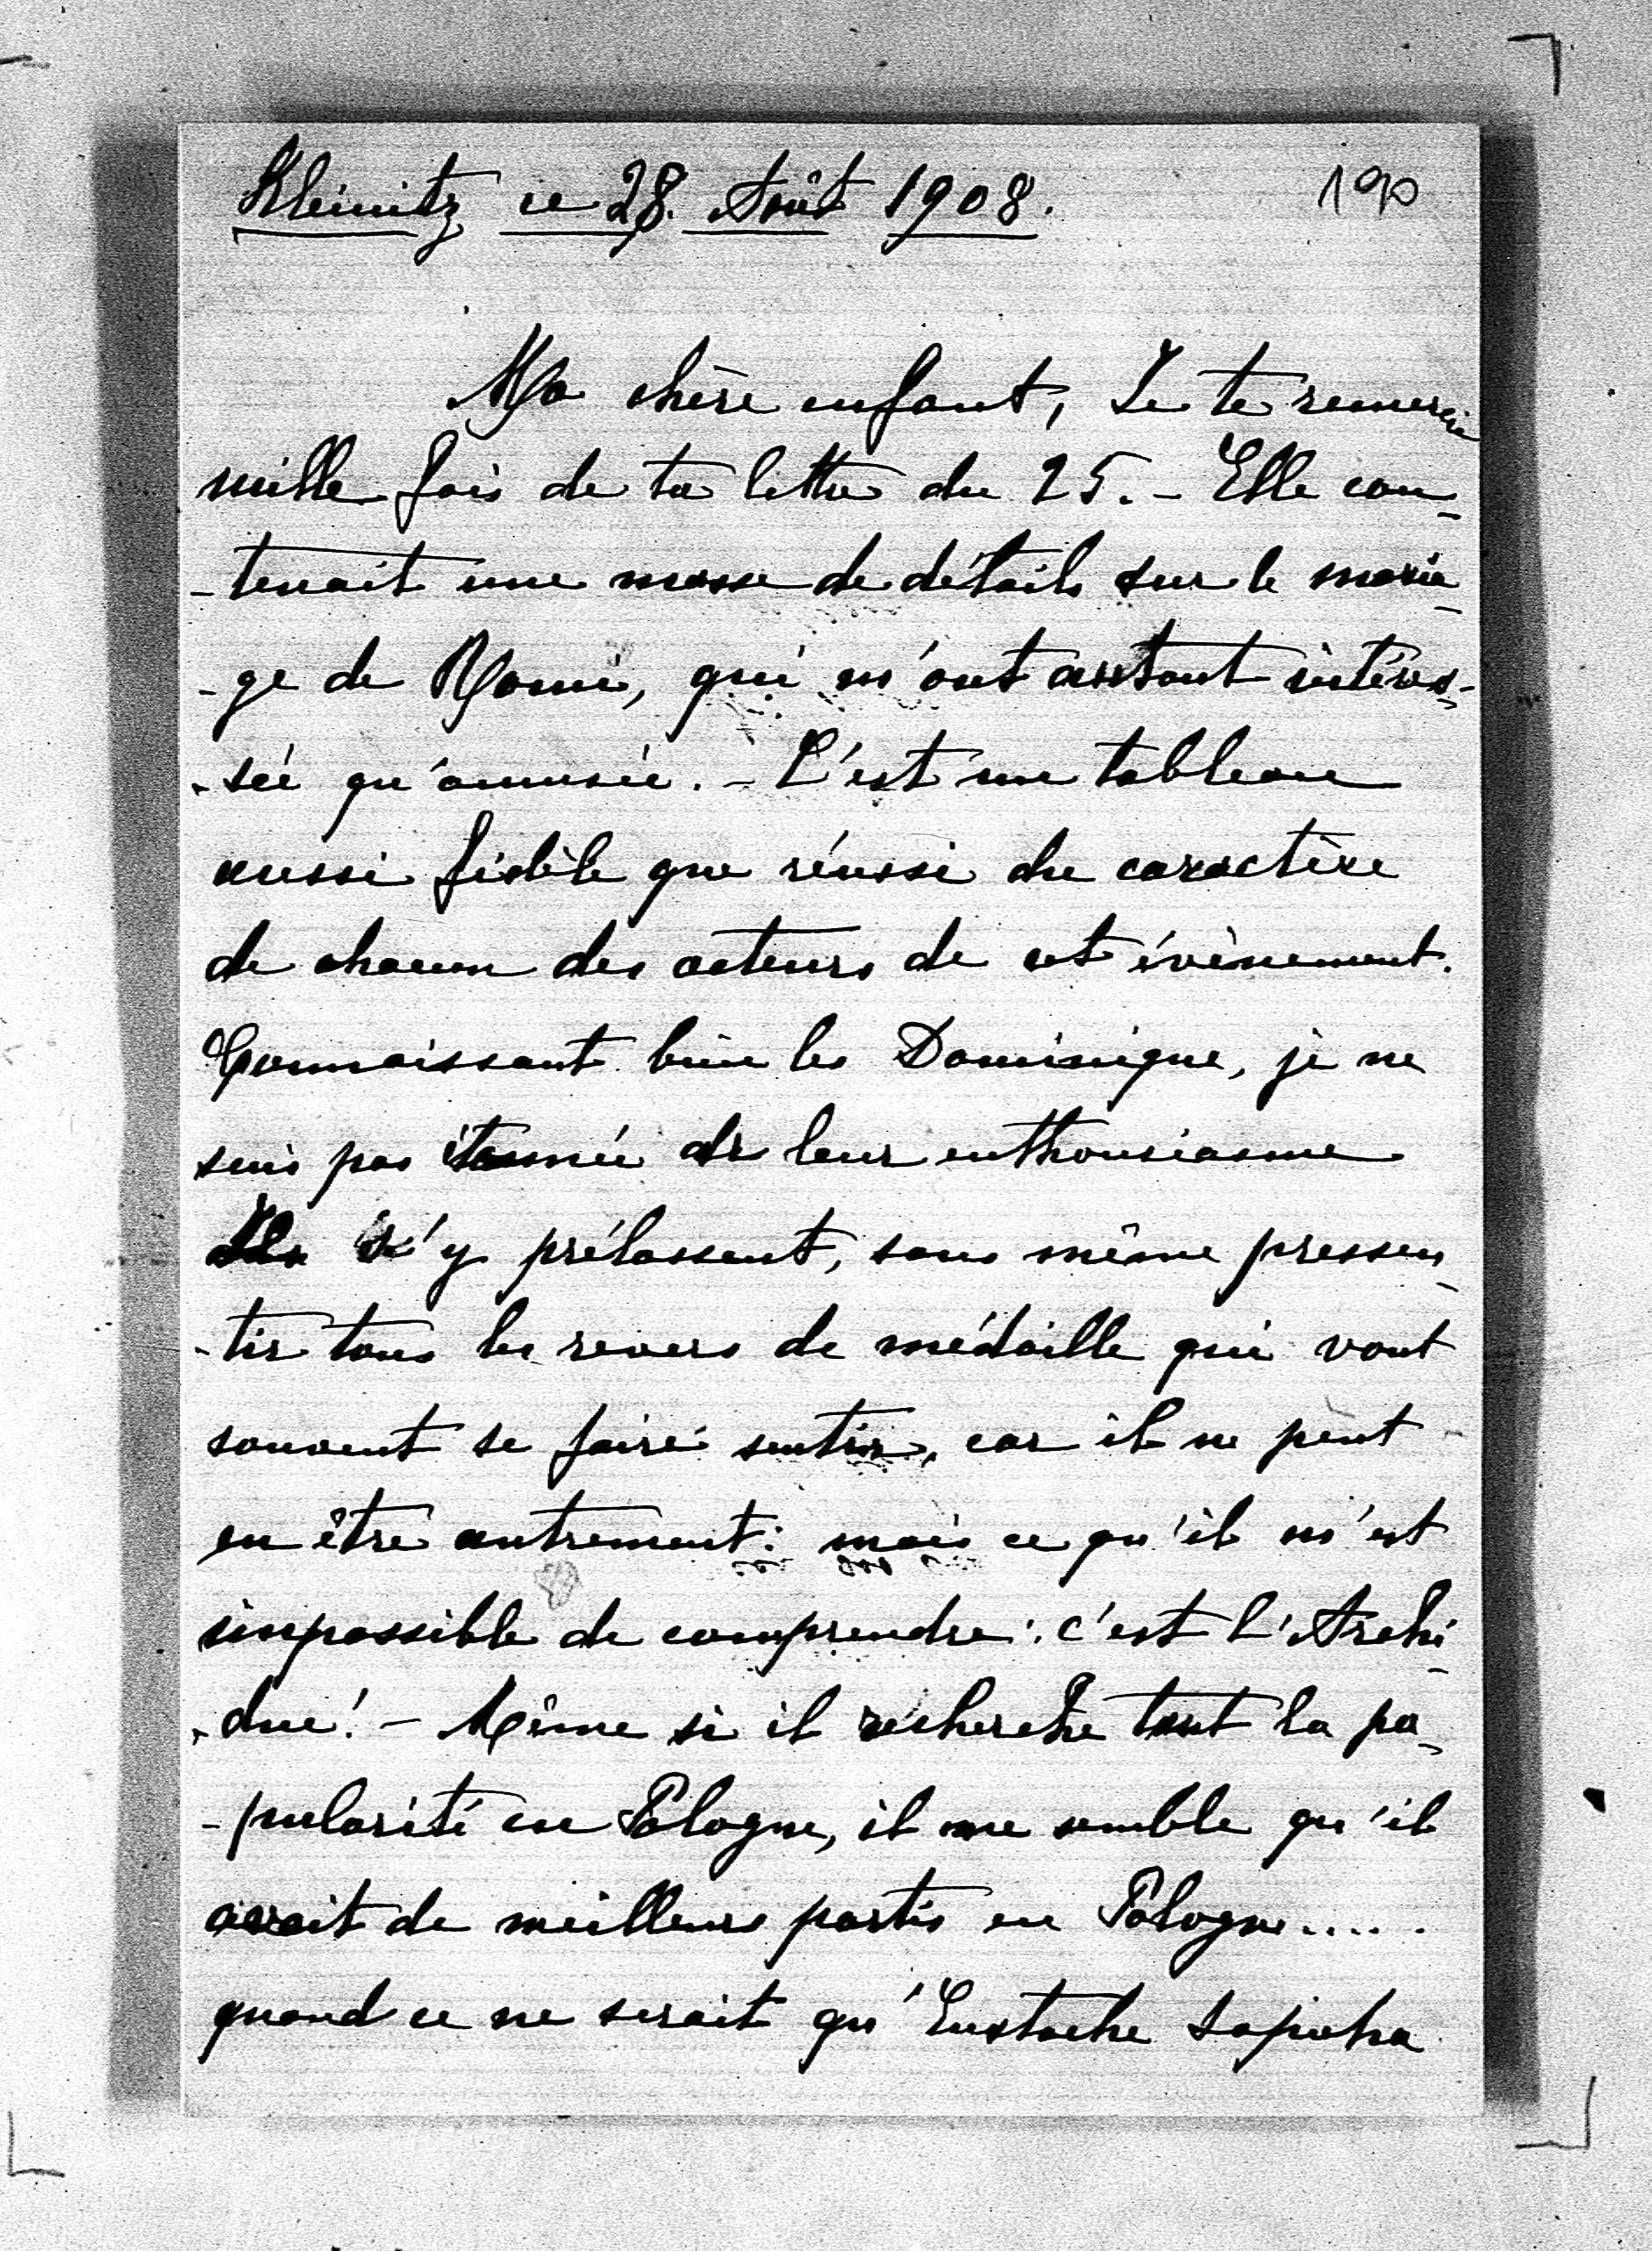 Kleinitz ce 28. Août 1908.
190
Ma chère enfant, Je te remercie
mille fois de ta lettre du 25. - Elle con-
-tenait une masse de détails sur le maria-
-ge de Mani, qui m'ont autant intéres-
-sée qu'amusée. - C'est un tableau
aussi fidèle que réussi du caractère
de chacun des acteurs de cet évènement.
Connaissant bien les Dominique, je ne
suis pas étonnée de leur enthousiasme
Ils s'y prélassent, sans même pressen-
-tir tous les revers de médaille qui vont
souvent se faire sentir, car il ne peut
en être autrement: mais ce qu'il m'est
impossible de comprendre: c'est l'Archi-
-duc! - Même si il recherche tant la po-
-pularité en Pologne, il me semble qu'il
avait de meilleurs partis en Pologne.....
quand ce ne serait qu'Eustache Sapieha